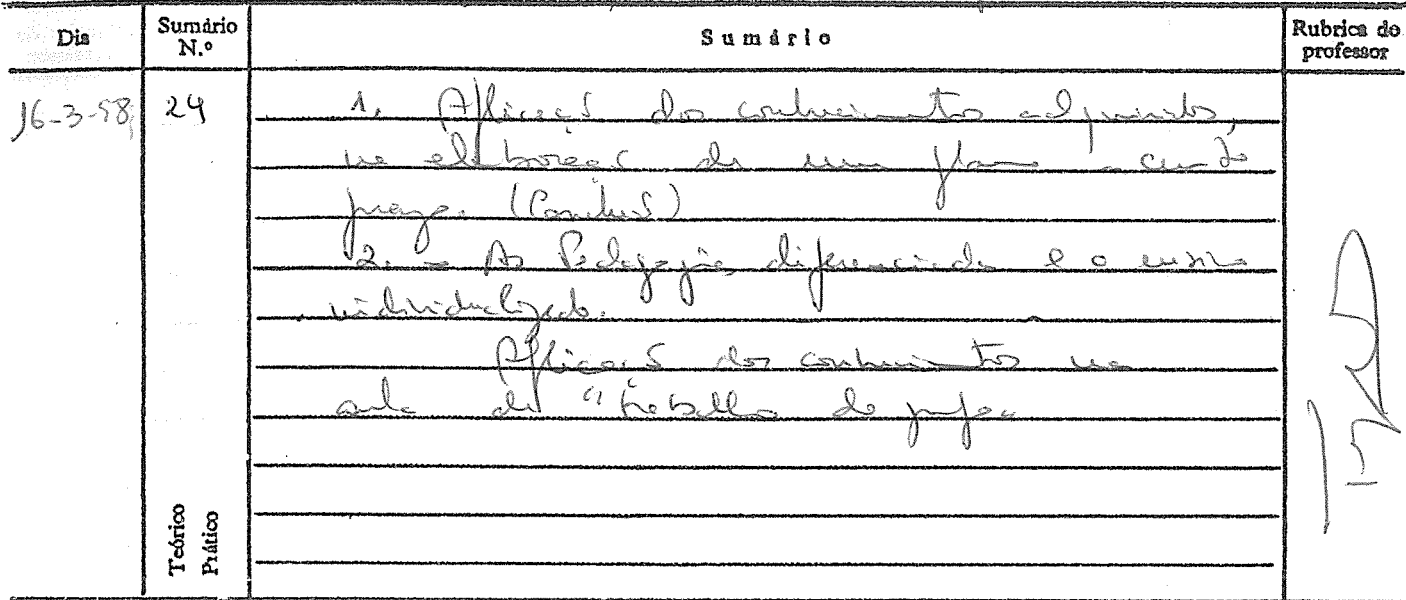 Dia
Sumário N.º
Sumário
Rubrica do professor
16-3-98
24
1. Aplicação dos conhecimentos adquiridos,
na elaboração de um plano a curto
prazo. (Conclusão)
2. - As Pedagogias diferenciadas e o ensino
individualizado.
Aplicação dos conhecimentos na
aula de "trabalho de
Teórico
Prático